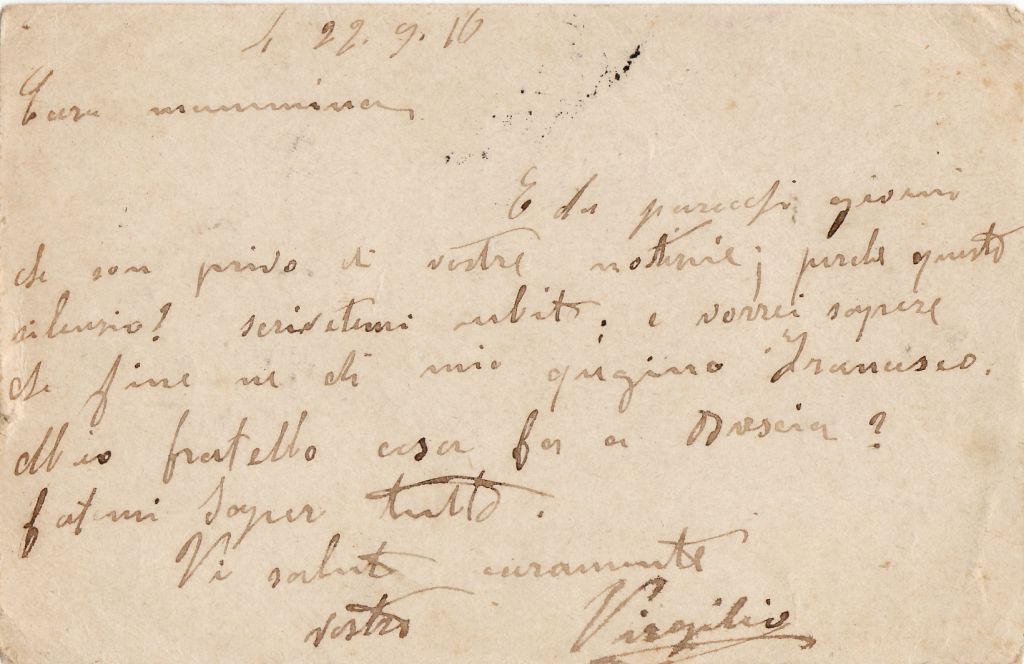 22.9.16
Cara mammina
E da parecchi giorni
che son privo di vostre notizie; perche questo
silenzio? scrivetemi subito. e vorrei sapere
che fine ne di mio qugino Francesco.
Mio fratello cosa fa a Brescia?
fatemi saper tutto.
Vi saluto caramente
vostro Virgilio